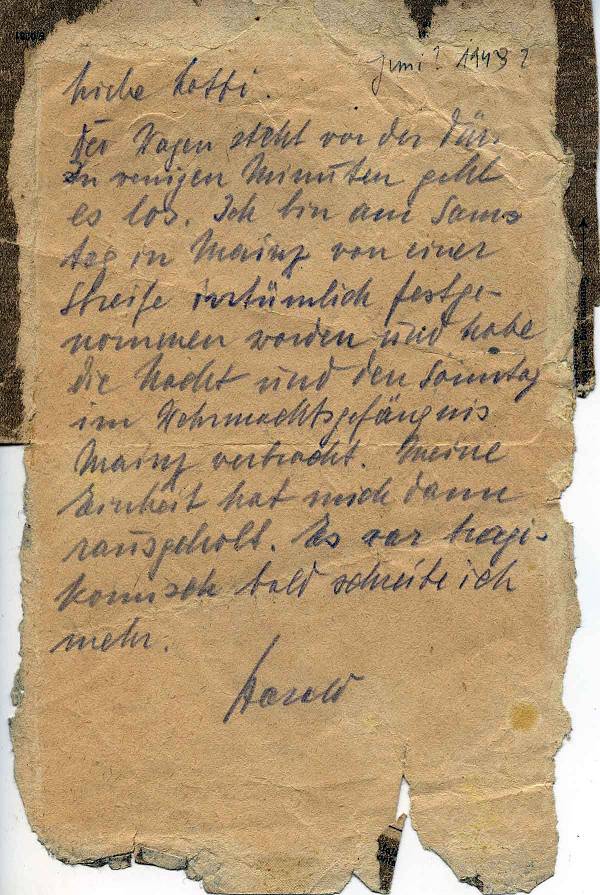 Juni? 1943?
Liebe Lotti.
Der Wagen steht vor der Tür.
In wenigen Minuten geht
es los. Ich bin am Sams
tag in Mainz von einer
Streife irrtümlich festge-
nommen worden und habe
die Nacht und den Sonntag
im Wehrmachtsgefängnis
Mainz verbracht. Meine
Einheit hat mich dann
rausgeholt. Es war tragi-
komisch bald schreibe ich
mehr.
Harald